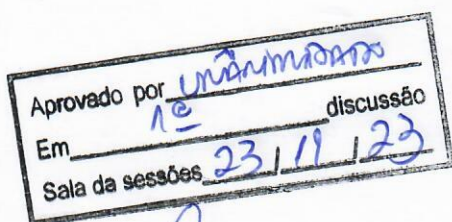 Aprovado por unânimidade
Em 1ª discussão
Sala da sessões 23 / 11 / 23